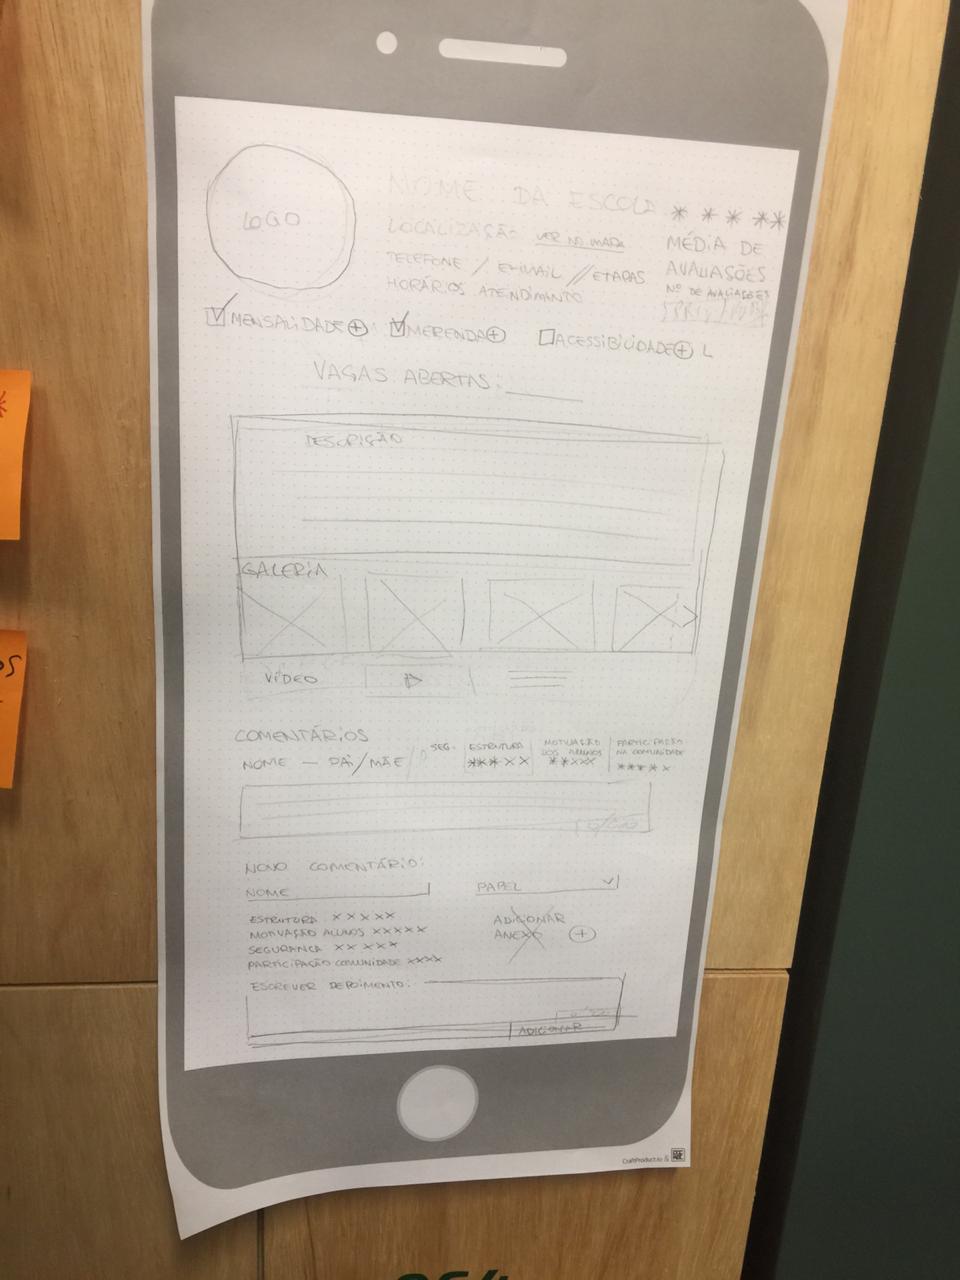 LOGO
NOME DA ESCOLA
LOCALIZAÇÃO VER NO MAPA
TELEFONE / E-MAIL // ETAPAS
HORÁRIOS ATENDIMENTO
MÉDIA DE
AVALIAÇÕES
Nº DE AVALIAÇÕES
MENSALIDADE + MERENDA + ACESSIBILIDADE +
VAGAS ABERTAS:
DESCRIÇÃO
GALERIA
VÍDEO
COMENTÁRIOS
NOME — PAI/MÃE
SEG.
ESTRUTURA
MOTIVAÇÃO
DOS ALUNOS
PARTICIPAÇÃO
NA COMUNIDADE
NOVO COMENTÁRIO:
NOME
PAPEL
ESTRUTURA X X X X X
MOTIVAÇÃO ALUNOS X X X X X
SEGURANCA X X X X X
PARTICIPAÇÃO COMUNIDADE X X X X
ADICIONAR
ANEXO +
ESCREVER DEPOIMENTO:
ADICIONAR
CraftProduct.io &